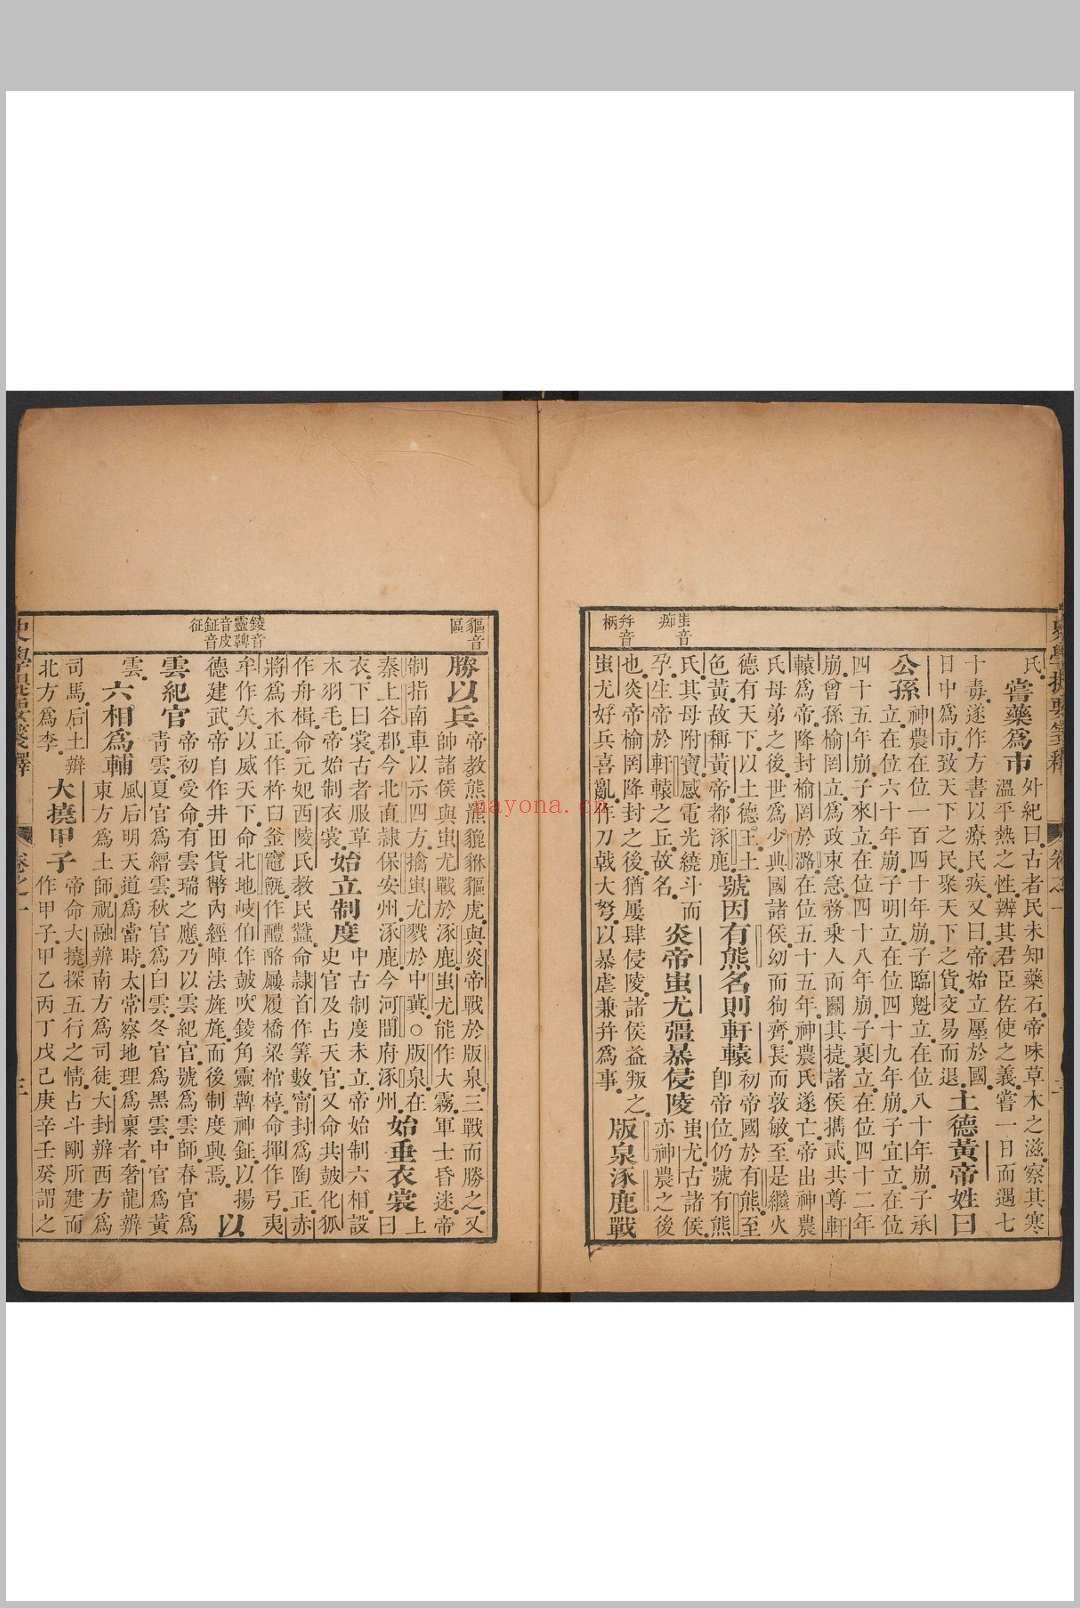 史學提要箋釋
卷之一
二
氏
嘗藥為市
外紀曰古者民未知藥石帝味草木之滋察其寒
溫平熱之性辨其君臣佐使之義嘗一日而遇七
十毒遂作方書以療民疾又曰帝始立廛於國
日中為市致天下之民聚天下之貨交易而退
土德黃帝姓曰
公孫
神農在位一百四十年崩子臨魁立在位八十年崩子承
立在位六十年崩子明立在位四十九年崩子宜立在位
四十五年崩子來立在位四十八年崩子裏立在位四十二年
崩曾孫榆罔立為政束急務乘人而鬭其捷諸侯攜貳共尊軒
轅為帝降封榆罔於潞在位五十五年神農氏遂亡帝出神農
氏母弟之後世為少典國諸侯幼而狥齊長而敦敏至是繼火
德有天下以土德王土
色黃故稱黃帝都涿鹿
號因有熊名則軒轅
初帝國於有熊至
卽帝位仍號有熊
氏其母附寶感電光繞斗而
孕生帝於軒轅之丘故名
炎帝蚩尤彊暴侵陵
蚩尤古諸侯
亦神農之後
也炎帝榆罔降封之後猶屢肆侵陵諸侯益叛之
蚩尤好兵喜亂作刀戟大弩以暴虐兼幷為事
版泉涿鹿戰
蚩音
痴
幷音
柄
貙音
區
錂音
靈鞞
音皮
鉦音
征
勝以兵
帝教熊羆貔貅貙虎與炎帝戰於版泉三戰而勝之又
帥諸侯與蚩尤戰於涿鹿蚩尤能作大霧軍士昏迷帝
制指南車以示四方擒蚩尤戮於中冀○版泉在上
秦上谷郡今北直隸保安州涿鹿今河間府涿州
始垂衣裳
曰
衣下曰裳古者服草
木羽毛帝始制衣裳
始立制度
中古制度未立帝始制六相設
史官及占天官又命共鼓化狐
作舟楫命元妃西陵氏教民蠶命隷首作筭數甯封為陶正赤
將為木正作杵臼釜竈甗作醴酪屨履橋梁棺椁命揮作弓夷
牟作矢以威天下命北地岐伯作鼓吹錂角靈鞞神鉦以揚
德建武帝自作井田貨幣內經陣法旌旄而後制度興焉
以
雲紀官
帝初受命有雲瑞之應乃以雲紀官號為雲師春官為
青雲夏官為縉雲秋官為白雲冬官為黑雲中官為黃
雲
六相為輔
風后明天道為當時太常察地理為稟者奢龍辨
東方為土師祝融辨南方為司徒大封辨西方為
司馬后土辨
北方為李
大撓甲子
帝命大撓探五行之情占斗剛所建而
作甲子甲乙丙丁戊己庚辛壬癸謂之
史學提要箋釋
卷之一
三
nayona.cn